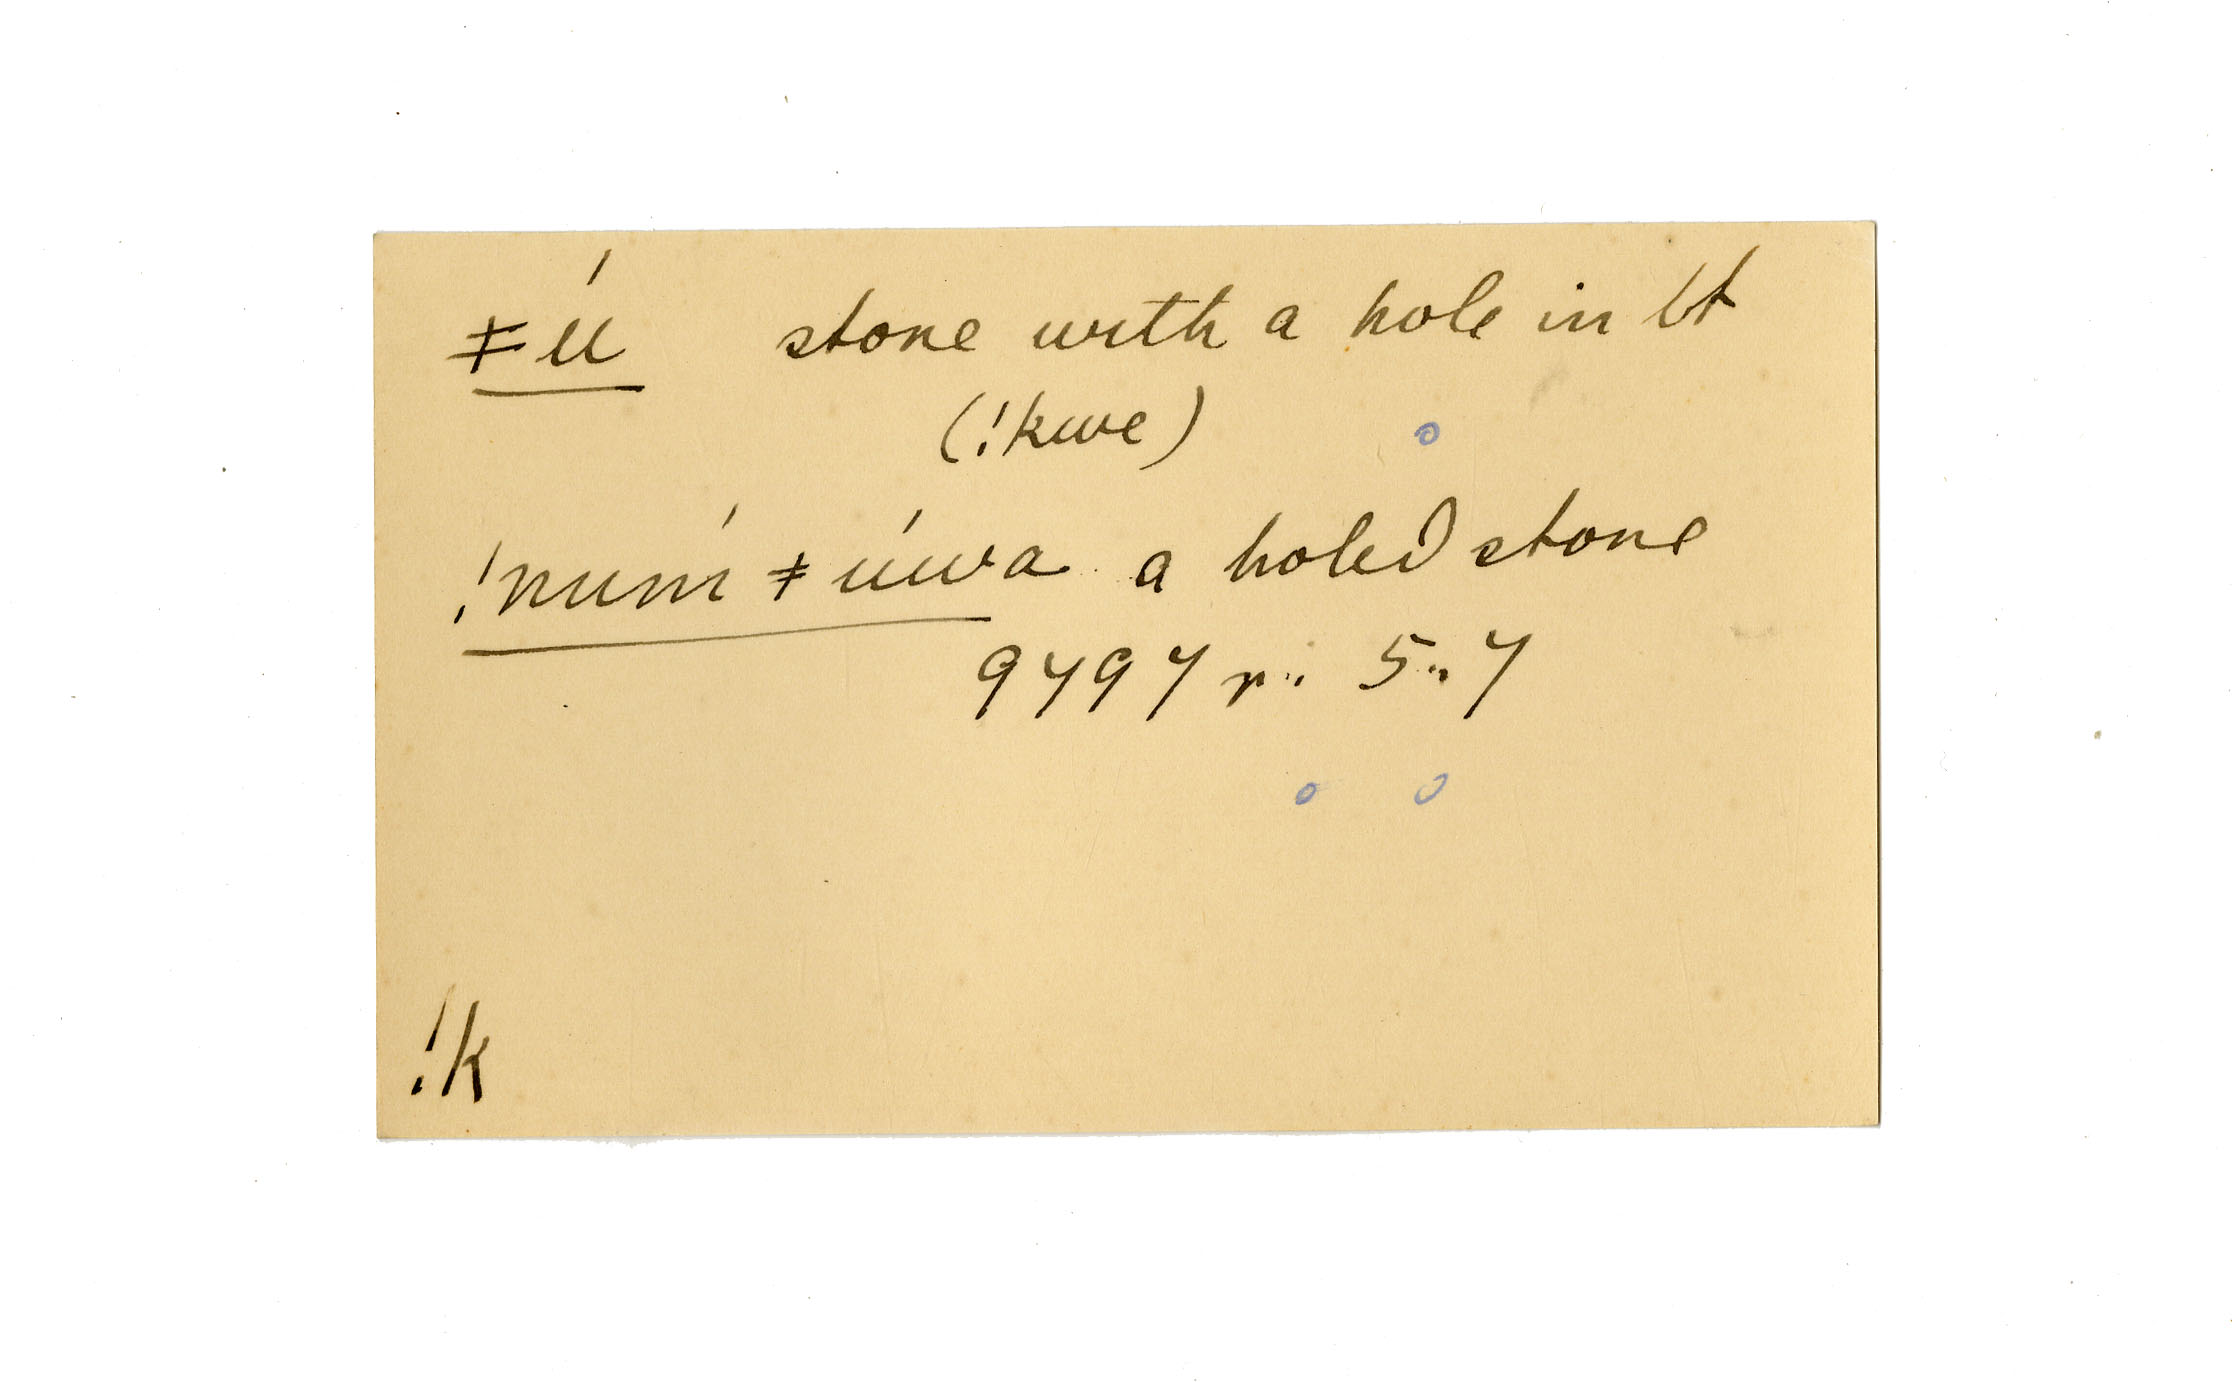 ǂú stone with a hole in it
(!kwe)
!num ǂúwa a holed stone
9797 r. 5.. 7
!k